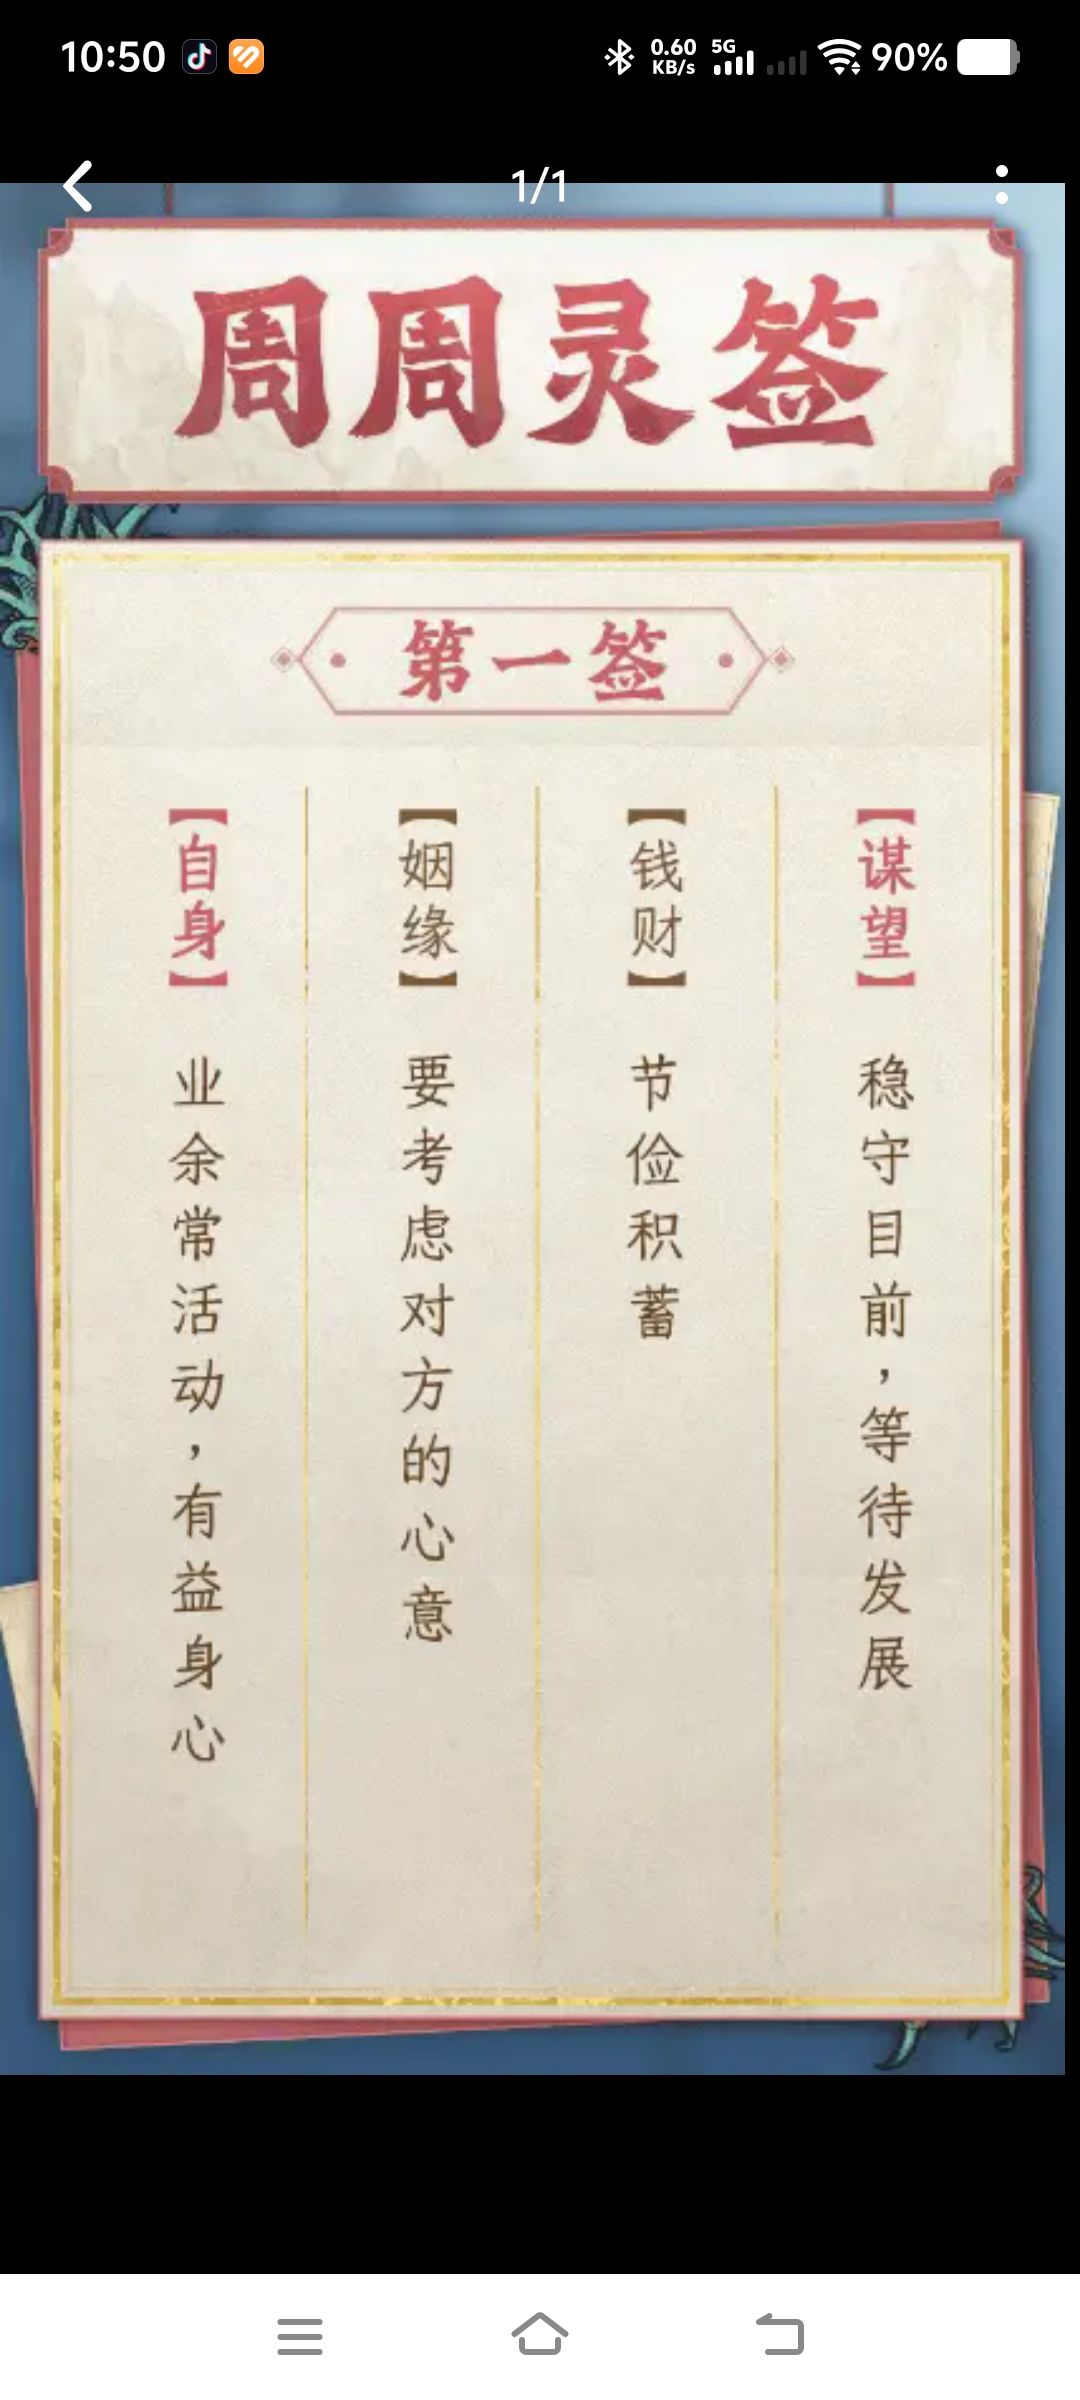 10:50
0.60 KB/s
5G
90%
1/1
周周灵签
第一签
【谋望】 稳守目前，等待发展
【钱财】 节俭积蓄
【姻缘】 要考虑对方的心意
【自身】 业余常活动，有益身心